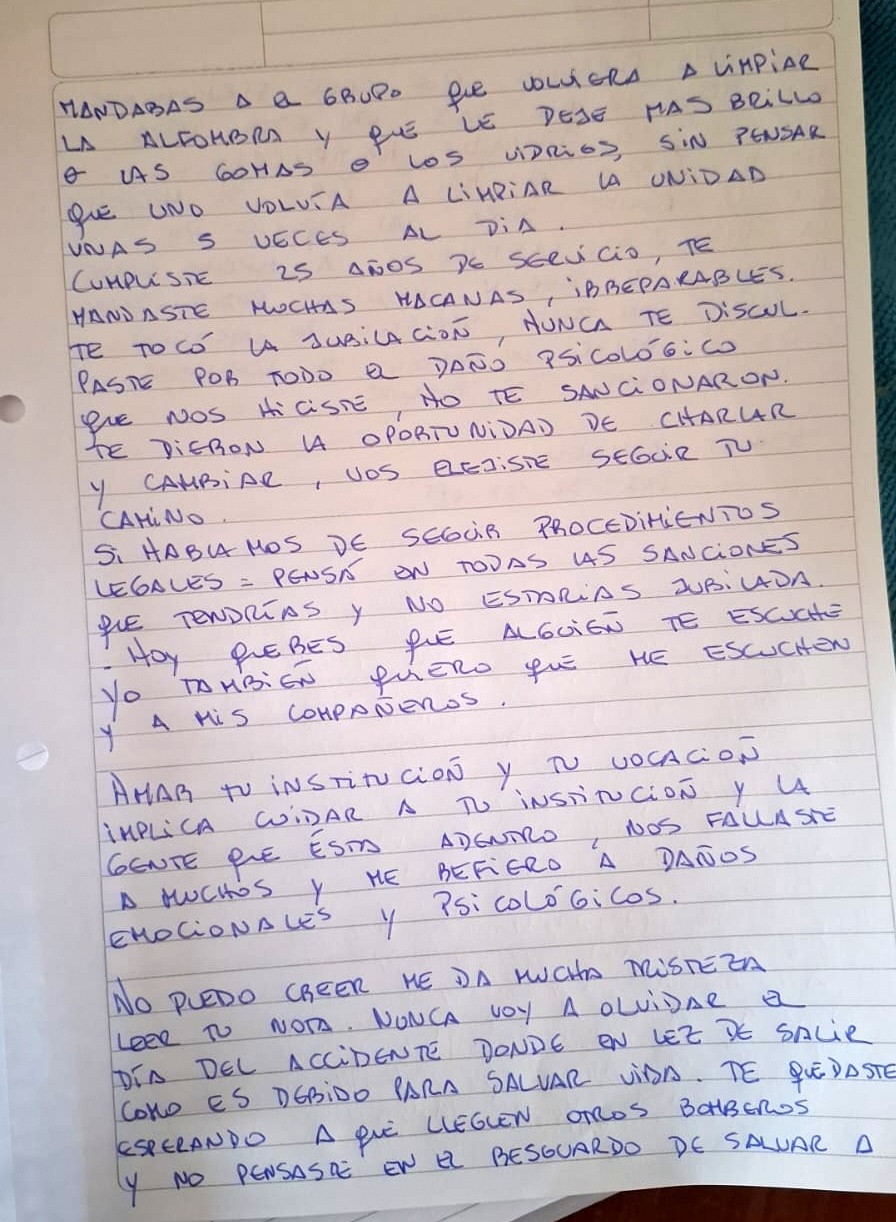 MANDABAS A EL GRUPO QUE VOLVIERA A LIMPIAR
LA ALFOMBRA Y QUE LE DEJE MAS BRILLO
O LAS GOMAS O LOS VIDRIOS, SIN PENSAR
QUE UNO VOLVÍA A LIMPIAR LA UNIDAD
UNAS 5 VECES AL DIA.
CUMPLISTE 25 AÑOS DE SERVICIO, TE
MANDASTE MUCHAS MACANAS, IRREPARABLES.
TE TOCÓ LA JUBILACIOÑ, NUNCA TE DISCUL-
PASTE POR TODO EL DAÑO PSICOLÓGICO
QUE NOS HICISTE, NO TE SANCIONARON.
TE DIERON LA OPORTUNIDAD DE CHARLAR
Y CAMBIAR, VOS ELEJISTE SEGUIR TU
CAMINO.
SI HABLAMOS DE SEGUIR PROCEDIMIENTOS
LEGALES = PENSÁ EN TODAS LAS SANCIONES
QUE TENDRÍAS Y NO ESTARIAS JUBILADA.
- HOY QUERES QUE ALGUIEÑ TE ESCUCHE
YO TAMBIEÑ QUIERO QUE ME ESCUCHEN
Y A MIS COMPAÑEROS.
AMAR TU INSTITUCIOÑ Y TU VOCACIOÑ
IMPLICA CUIDAR A TU INSTITUCIOÑ Y LA
GENTE QUE ÉSTA ADENTRO, NOS FALLASTE
A MUCHOS Y ME REFIERO A DAÑOS
EMOCIONALES Y PSICOLÓGICOS.
NO PUEDO CREER ME DA MUCHA TRISTEZA
LEER TU NOTA. NUNCA VOY A OLVIDAR EL
DÍA DEL ACCIDENTE DONDE EN VEZ DE SALIR
COMO ES DEBIDO PARA SALVAR VIDA. TE QUEDASTE
ESPERANDO A QUE LLEGUEN OTROS BOMBEROS
Y NO PENSASTE EN EL RESGUARDO DE SALVAR A